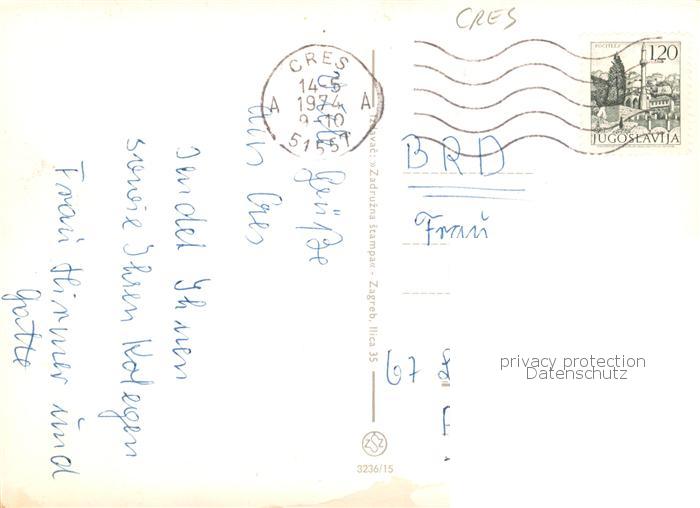 CRES
CRES
14-5
1974
9-10
A A
51557
POČITELJ
1.20
JUGOSLAVIJA
Grüße
aus Cres
sendet Ihnen
sowie Ihren Kolegen
Frau Hirmer und
Gatte
Izdavač: »Zadružna štampa« - Zagreb, Ilica 35
3236/15
BRD
Frau
67
privacy protection
Datenschutz